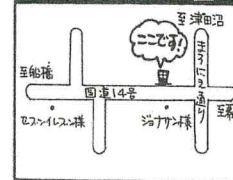 至津田沼
ここです!
まろにえ通り
至船橋
国道14号
セブンイレブン様
ジョナサン様